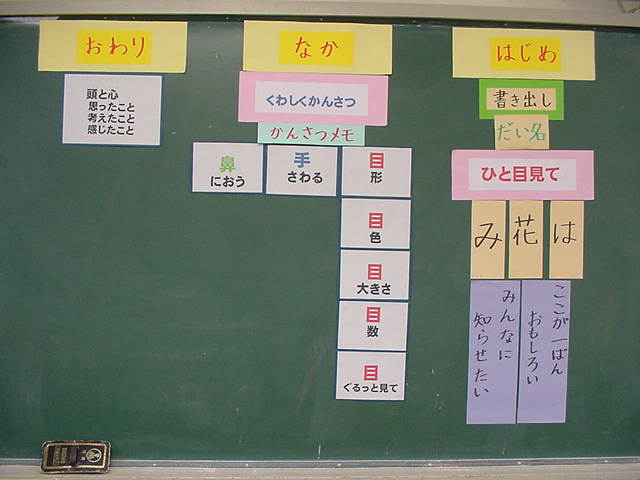 はじめ
書き出し
だい名
ひと目見て
は
花
み
ここが一ばん
おもしろい
みんなに
知らせたい
なか
くわしくかんさつ
かんさつメモ
目
形
目
色
目
大きさ
目
数
目
ぐるっと見て
手
さわる
鼻
におう
おわり
頭と心
思ったこと
考えたこと
感じたこと